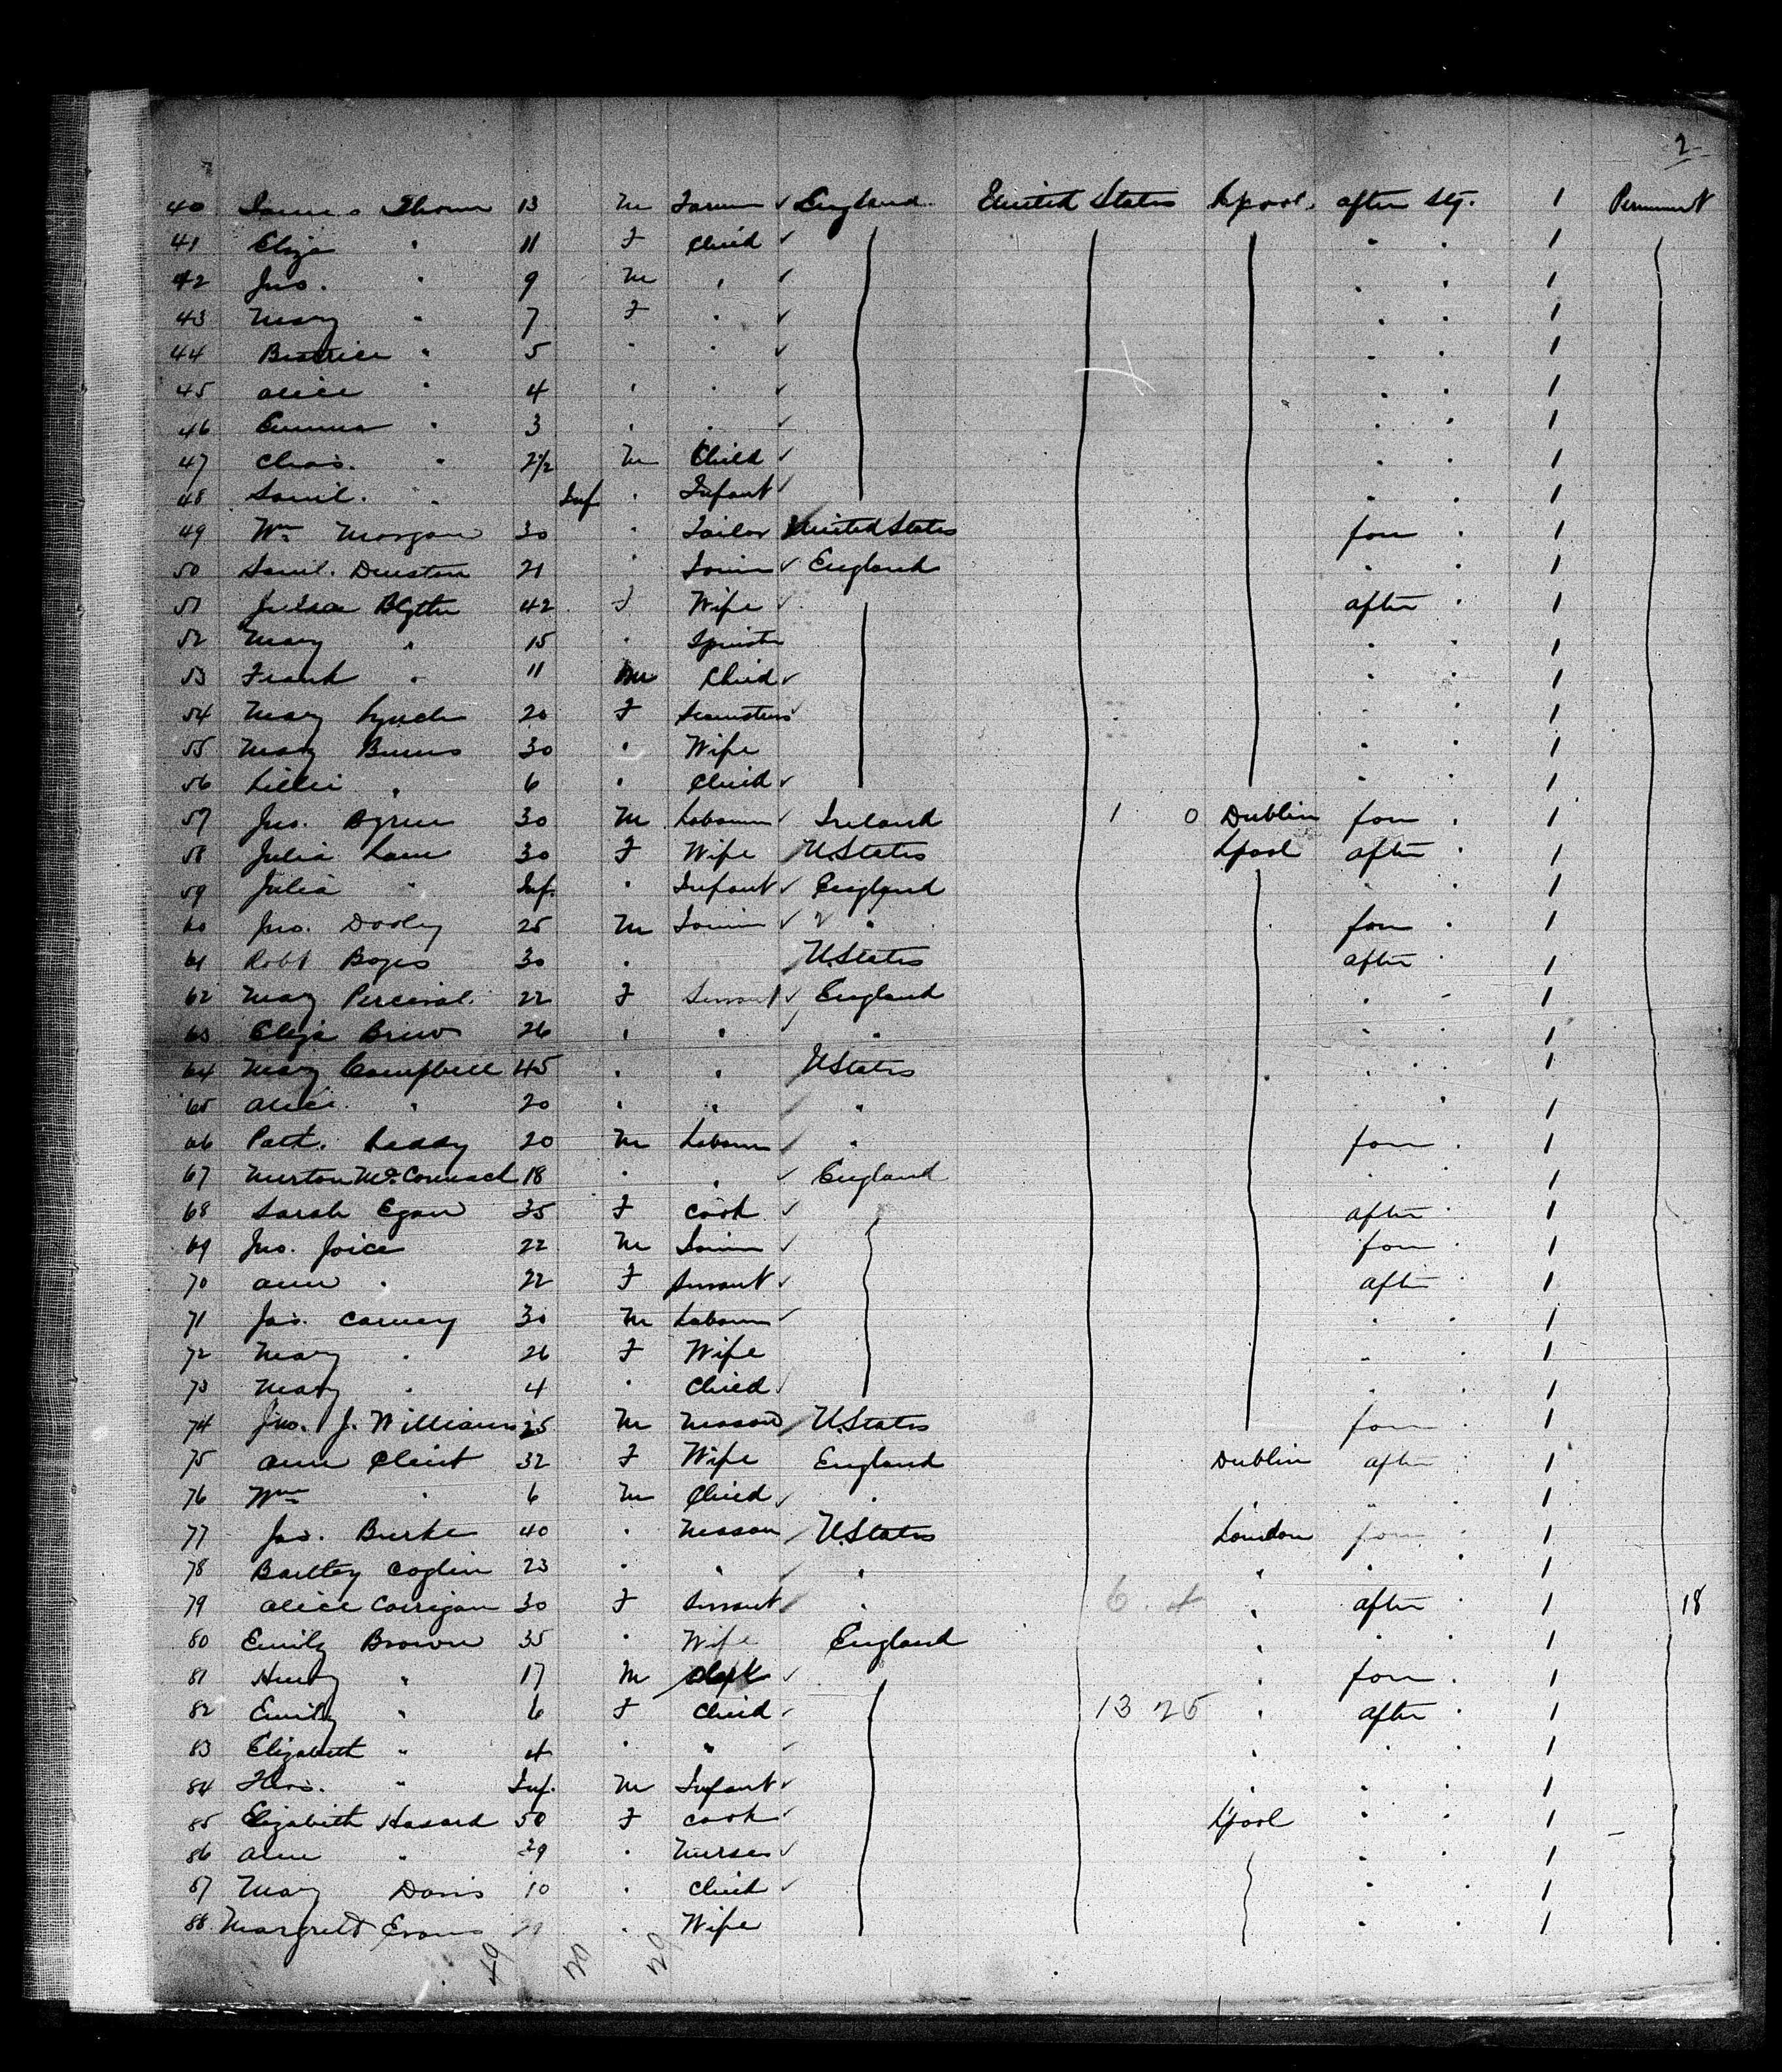 2
40 James Thom 13 M Farmer ✓ England United States Lpool. after Stg. 1 Permanent
41 Eliza " 11 F Child ✓ " " 1
42 Jno. " 9 M " ✓ " " 1
43 Mary " 7 F " ✓ " " 1
44 Beatrice " 5 " " ✓ " " 1
45 Alice " 4 " " ✓ " " 1
46 Emma " 3 " " ✓ " " 1
47 Chas. " 2½ M Child ✓ " " 1
48 Saml. " Inf " Infant ✓ " " 1
49 Wm Morgan 30 " Tailor United States for " 1
50 Saml. Dunstan 21 " ✓ England " " 1
51 Blythe 42 F Wife ✓ after " 1
52 Mary " 15 " Spinster " " 1
53 Frank " 11 M Child ✓ " " 1
54 Mary Lynch 20 F Seamstress ✓ " " 1
55 Mary Burns 30 " Wife " " 1
56 Lillie " 6 " Child ✓ " " 1
57 Jno. Byrne 30 M Labourer ✓ Ireland 1 0 Dublin for " 1
58 Julia Lane 30 F Wife U.States Lpool after " 1
59 Julia " Inf. " Infant ✓ England " " 1
60 Jno. Dooley 25 M ✓ " for " 1
61 Robt 30 " U.States after " 1
62 Mary Percival 22 F Servant ✓ England " " 1
63 Eliza Brew 26 " " ✓ " " " 1
64 Mary Campbell 45 " " UStates " " 1
65 Alice " 20 " " " " 1
66 Patk. Leddy 20 M Labourer " for " 1
67 18 " " ✓ England " " 1
68 Sarah Egan 35 F Cook ✓ after " 1
69 Jno. Joice 22 M ✓ for " 1
70 Ann " 22 F Servant ✓ after " 1
71 Jas. Carney 30 M Labourer ✓ " " 1
72 Mary " 26 F Wife " " 1
73 Mary " 4 " Child ✓ " " 1
74 Jno. J. Williams 25 M Mason U.States for " 1
75 Ann Clint 32 F Wife England Dublin after " 1
76 Wm " 6 M Child ✓ " " " " 1
77 Jas. Burke 40 " Mason U.States London for " 1
78 Bartley Coglin 23 " " " " " " 1
79 Alice Corrigan 30 F Servant " 6 " after " 1 18
80 Emily Brown 35 " Wife England " " " 1
81 Henry " 17 M Clerk ✓ " for " 1
82 Emily " 6 F Child ✓ 13 25 " after " 1
83 Elizabeth " 4 " " ✓ " " " 1
84 Thos. " Inf. M Infant ✓ " " " 1
85 Elizabeth Hasard 50 F Cook ✓ Lpool " " 1
86 Ann " 29 " Nurse ✓ " " 1
87 Mary Davis 10 " Child ✓ " " 1
88 Margrett Evans " Wife " " 1